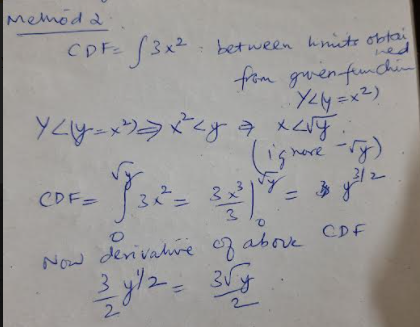 Method 2
CDF = ∫3x² . between limits obtained
from given function
Y<(y=x²)
Y<(y=x²) ⇒ x²<y ⇒ x<√y
(ignore -√y)
CDF = ∫₀^√y 3x² = 3x³/3 |₀^√y = y^3/2
Now derivative of above CDF
3/2 y^1/2 = 3√y/2